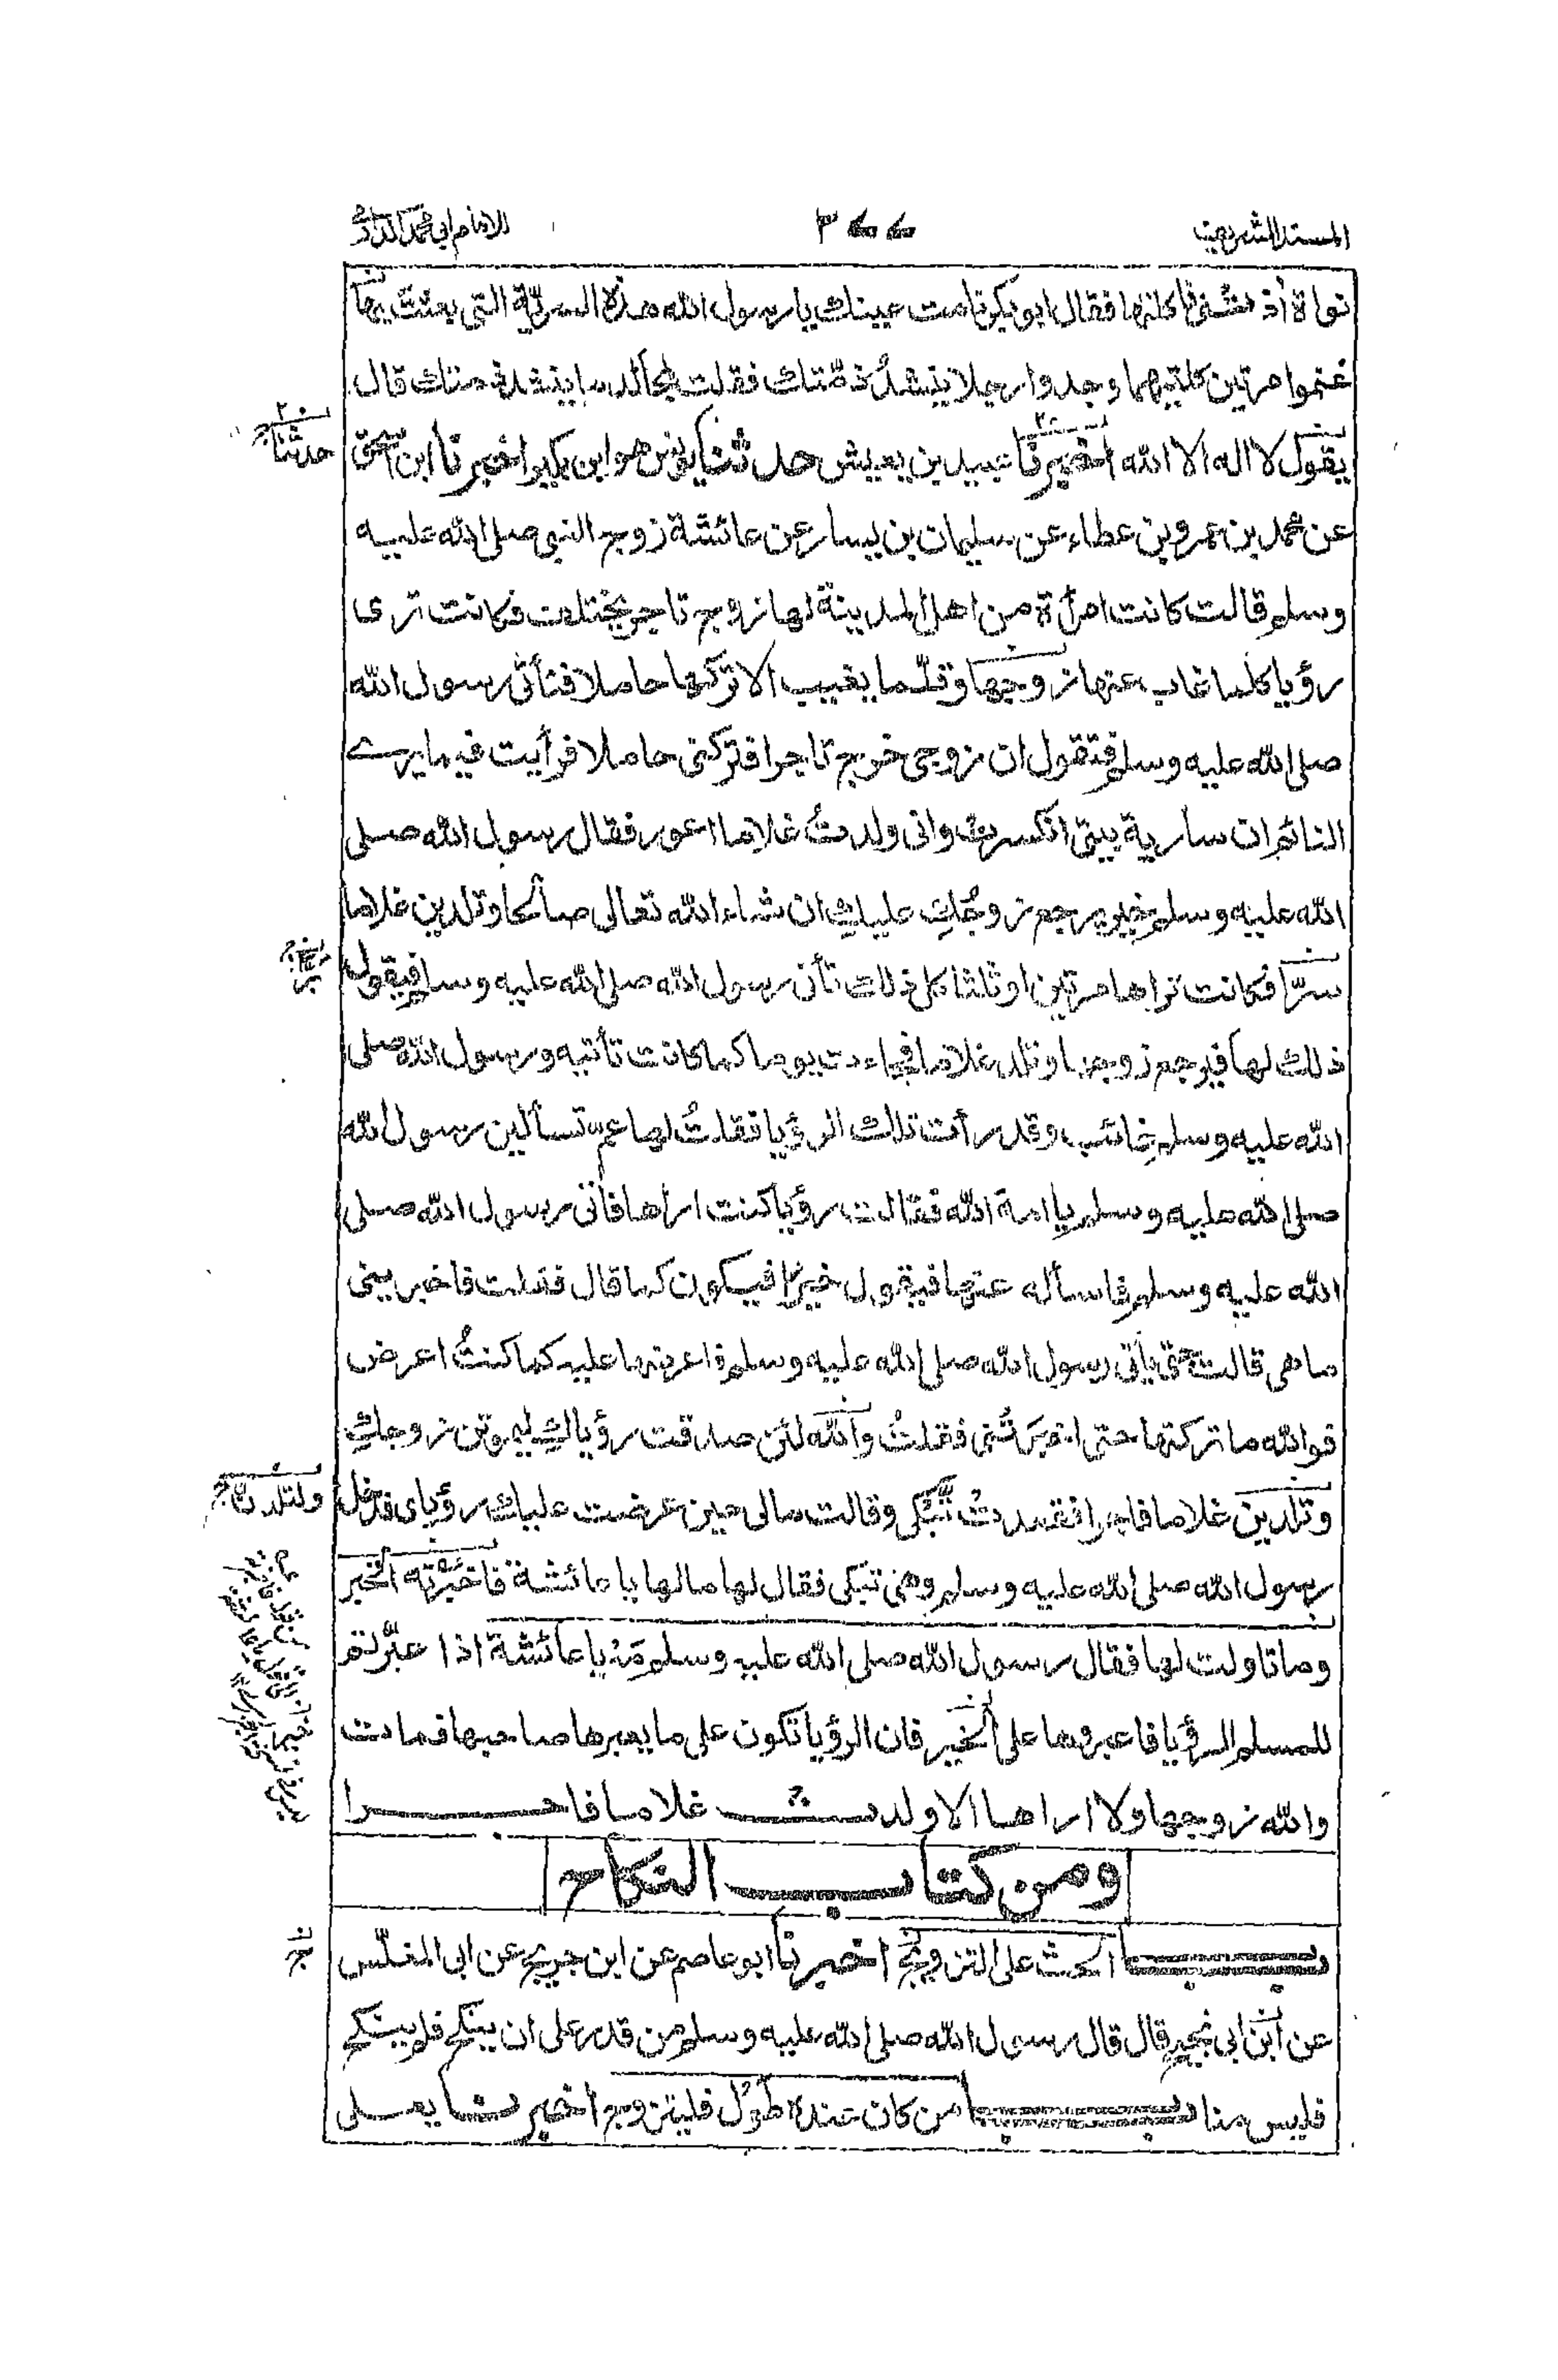 المسند الشريف ٢٧٧ للامام ابي محمد الدارمي
نواة أذ فأكلتها فقال ابو بكر نامت عينك يا رسول الله هذه السريّة التى بعثت بها
غنموا مرتين كلتيهما وجدوا رجلا ينشدُ ذمّتك فقلت لمجالد ما ينشد ذمتك قال
يقول لا اله الا الله اخبرنا عبيد بن يعيش حدثنا يونس هو ابن بكير اخبرنا ابن اسحق
حدثنا
عن محمد بن عمرو بن عطاء عن سليمان بن يسار عن عائشة زوج النبى صلى الله عليه
وسلم قالت كانت امرأة من اهل المدينة لها زوج تاجر يختلف فكانت ترى
رؤيا كلما غاب عنها زوجها وقلّما يغيب الا تركها حاملا فتأتى رسول الله
صلى الله عليه وسلم فتقول ان زوجى خرج تاجرا فتركنى حاملا فرأيت فيما يرى
النائم ان سارية بيتى انكسرت وانى ولدتُ غلاما اعور فقال رسول الله صلى
الله عليه وسلم خير يرجع زوجُكِ عليكِ ان شاء الله تعالى صالحا وتلدين غلاما
برّا فكانت تراها مرتين او ثلثا كل ذلك تأتى رسول الله صلى الله عليه وسلم فيقول
ذلك لها فيرجع زوجها وتلد غلاما فجاءت يوما كما كانت تأتيه ورسول الله صلى
الله عليه وسلم غائب وقد رأت تلك الرؤيا فقلتُ لها عم تسألين رسول الله
صلى الله عليه وسلم يا امة الله فقالت رؤيا كنت اراها فاتى رسول الله صلى
الله عليه وسلم فاسأله عنها فيقول خيرًا فيكون كما قال فقلت فاخبرينى
ما هى قالت حتى يأتى رسول الله صلى الله عليه وسلم فاعرضها عليه كما كنتُ اعرض
فوالله ما تركتها حتى اخبرَتْنى فقلتُ والله لئن صدقت رؤياكِ ليموتن زوجكِ
وتلدين غلاما فاجرا فقعدتْ تبْكى وقالت مالى حين عرضت عليك رؤياى فدخل
ولتلدنّ
رسول الله صلى الله عليه وسلم وهى تبكى فقال لها مالها يا عائشة فاخبَرْتُه الخبر
وما تاولت لها فقال رسول الله صلى الله عليه وسلم مَهْ يا عائشة اذا عبّرتم
للمسلم الرؤيا فاعبروها على الخير فان الرؤيا تكون على ما يعبرها صاحبها فماتت
والله زوجها ولا اراها الا ولدت غلاما فاجرا
ومن كتاب النكاح
باب الحث على التزويج اخبرنا ابو عاصم عن ابن جريج عن ابى المغلّس
عن ابن ابى نجيح قال قال رسول الله صلى الله عليه وسلم من قدر على ان ينكح فلم ينكح
فليس منا باب من كان عنده طَوْل فليتزوج اخبرنا يعلى